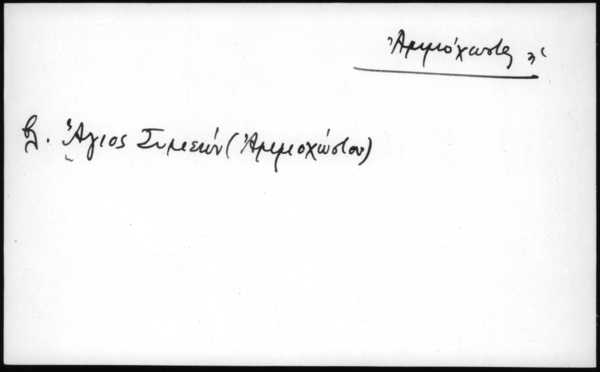 Ἀμμόχωστος
βλ. Ἅγιος Συμεών (Ἀμμοχώστου)